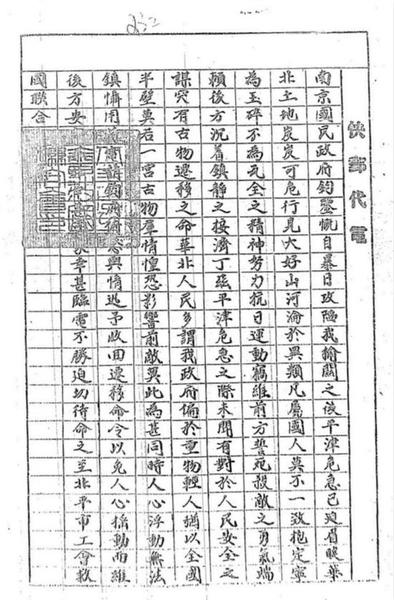 快郵代電
南京國民政府鈞鑒慨自暴日攻陷我榆關之後平津危急已迫眉睫華
北土地岌岌可危行見大好山河淪於異類凡屬國人莫不一致抱定寧
為玉碎不為瓦全之精神努力抗日運動竊維前方誓死殺敵之勇氣端
賴後方沉着鎮静之接濟丁茲平津危急之際未聞有對於人民安全之
謀突有古物遷移之命華北人民多謂我政府偏於重物輕人猶以全國
半壁莫若一宮古物羣情惶恐影響前敵與此為甚同時人心浮動無法
鎮懾用輿情迅予收回遷移命令以免人心搖動而維
後方安幸甚臨電不勝迫切待命之至北平市工會救
國聯合